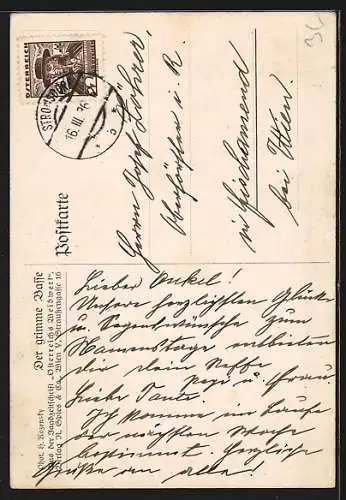 ÖSTERREICH
16. III. 36
Postkarte
Der grimme Basse
Phot. H. Rozensky
Aus der Jagdzeitschrift "Österreichs Weidwerk"
Verlag R. Spies & Co., Wien V, Straußengasse 16
Herrn Josef Löhner,
Oberförster i. R.
in Fischamend
bei Wien.
Lieber Onkel!
Unsere herzlichsten Glück-
u. Segenswünsche zum
Namenstage entbieten
dir dein Neffe
Pepi u. Frau.
Liebe Tante!
Ich komme im Laufe
der nächsten Woche
bestimmt. Herzliche
Grüße an alle!